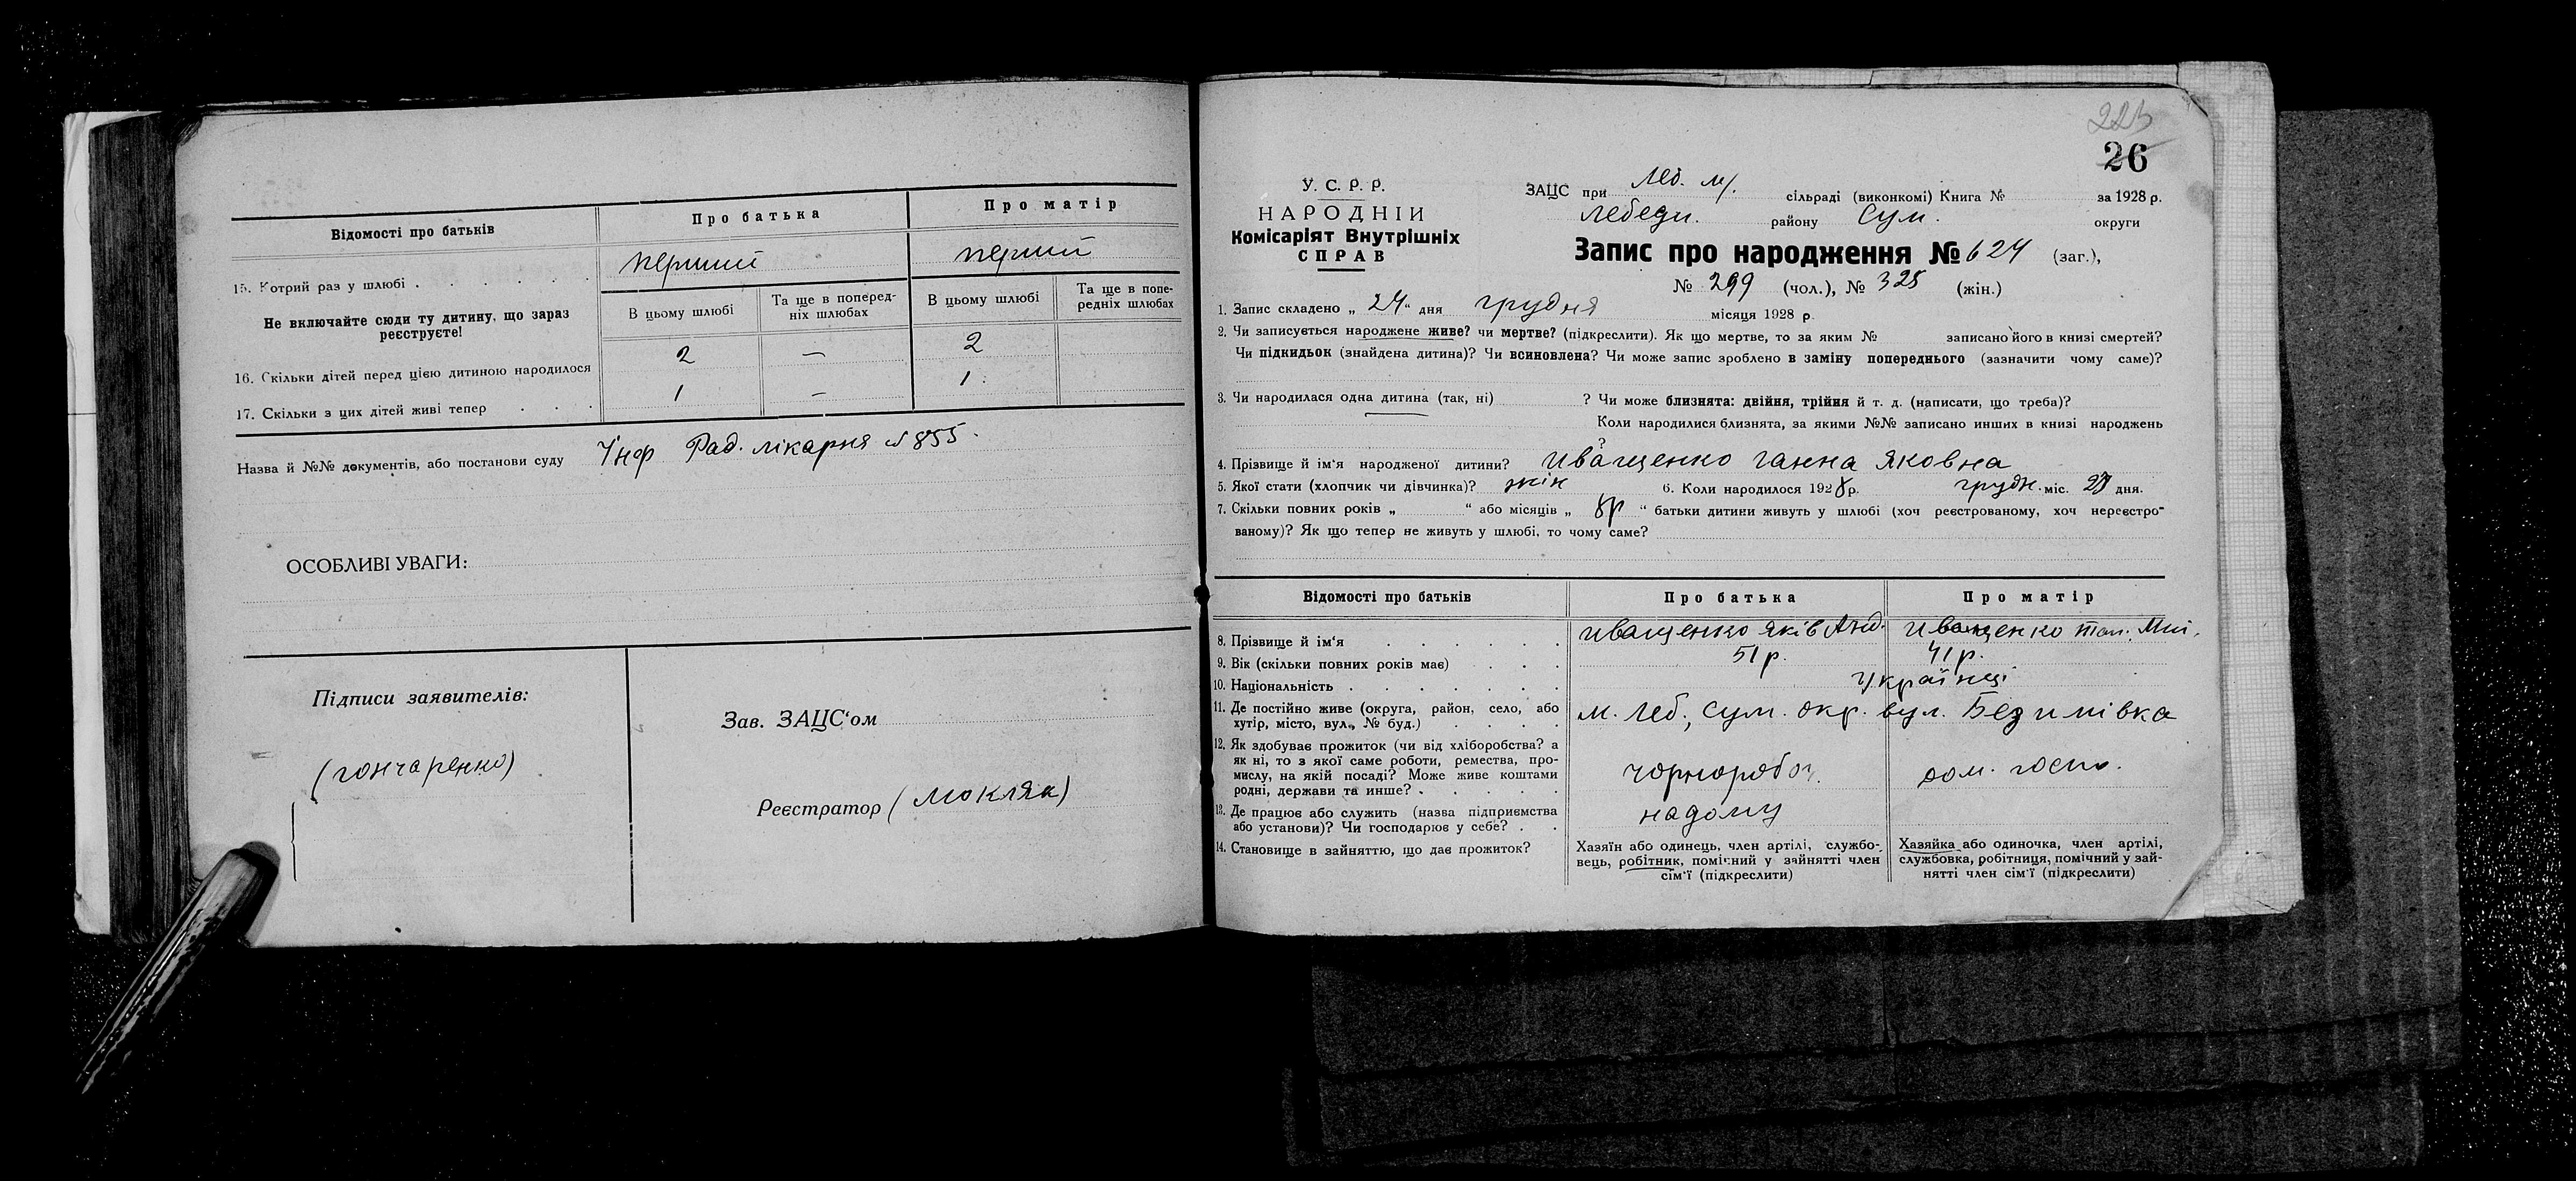 Відомості про батьків
Про батька
Про матір
15. Котрий раз у шлюбі
перший
перший
Не включайте сюди ту дитину, що зараз
реєструєте!
В цьому шлюбі
Та ще в поперед-
ніх шлюбах
В цьому шлюбі
Та ще в попе-
редніх шлюбах
16. Скільки дітей перед цією дитиною народилося
2 — 2
17. Скільки з цих дітей живі тепер
1 — 1
Назва й №№ документів, або постанови суду Рад. лікарня № 855.
ОСОБЛИВІ УВАГИ:
Підписи заявителів:
(Гончаренко)
Зав. ЗАЦС'ом
Реєстратор (Мокляк)
26
У. С. Р. Р.
НАРОДНІЙ
Комісаріят Внутрішніх
СПРАВ
ЗАЦС при Леб. м/. сільраді (виконкомі) Книга № за 1928 р.
Лебеди. району Сум. округи
Запис про народження № 624 (заг.),
№ 299 (чол.), № 325 (жін.)
1. Запис складено „ 24 “ дня грудня місяця 1928 р.
2. Чи записується народжене живе? чи мертве? (підкреслити). Як що мертве, то за яким № записано його в книзі смертей?
Чи підкидьок (знайдена дитина)? Чи всиновлена? Чи може запис зроблено в заміну попереднього (зазначити чому саме)?
3. Чи народилася одна дитина (так, ні) ? Чи може близнята: двійня, трійня й т. д. (написати, що треба)?
Коли народилися близнята, за якими №№ записано инших в книзі народжень
?
4. Прізвище й ім'я народженої дитини? Иващенко Ганна Яковна
5. Якої стати (хлопчик чи дівчинка)? жін 6. Коли народилося 1928 р. грудн. міс. дня.
7. Скільки повних років „ “ або місяців „ 8р “ батьки дитини живуть у шлюбі (хоч реєстрованому, хоч нереєстро-
ваному)? Як що тепер не живуть у шлюбі, то чому саме?
Відомості про батьків
Про батька
Про матір
8. Прізвище й ім'я
Иващенко Яків Анд.
Иващенко
9. Вік (скільки повних років має)
51 р.
41 р.
10. Національність
Українці
11. Де постійно живе (округа, район, село, або
хутір, місто, вул., № буд.)
м. Леб., Сум. окр. вул. Безимівка
12. Як здобуває прожиток (чи від хліборобства? а
як ні, то з якої саме роботи, ремества, про-
мислу, на якій посаді? Може живе коштами
родні, держави та инше?
чорнороб.
дом. госп.
13. Де працює або служить (назва підприємства
або установи)? Чи господарює у себе?
надому
14. Становище в зайняттю, що дає прожиток?
Хазяїн або одинець, член артілі, службо-
вець, робітник, помічний у зайнятті член
сім'ї (підкреслити)
Хазяйка або одиночка, член артілі,
службовка, робітниця, помічний у зай-
нятті член сім'ї (підкреслити)